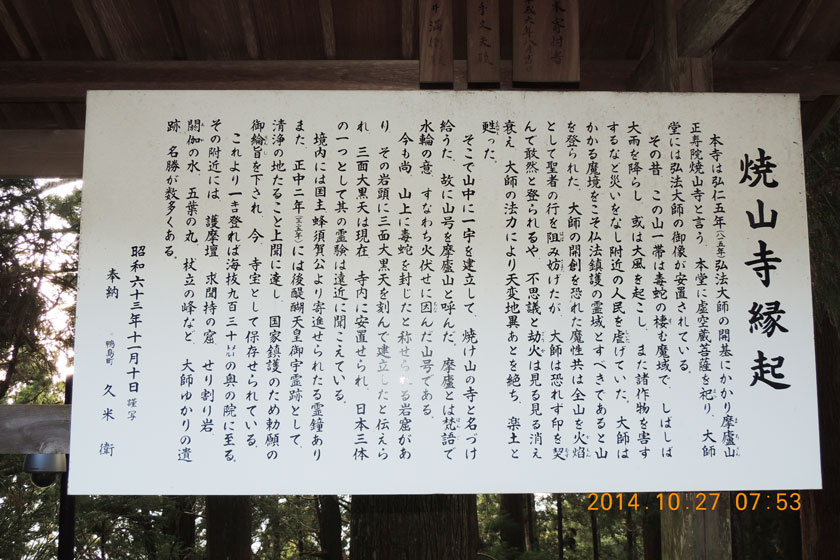 焼山寺縁起
本寺は弘仁五年(八一五年)弘法大師の開基にかかり摩廬山
正寿院焼山寺と言う。本堂に虚空蔵菩薩を祀り、大師
堂には弘法大師の御像が安置されている。
その昔、この山一帯は毒蛇の棲む魔域で、しばしば
大雨を降らし、或は大風を起こし、また諸作物を害す
するなど災いをなし附近の人民を虐げていた。大師は
かかる魔境をこそ仏法鎮護の霊域とすべきであると山
を登られた。大師の開創を恐れた魔性共は全山を火焰
として聖者の行を阻み妨げたが、大師は恐れず印を契
んで敢然と登られるや、不思議と劫火は見る見る消え
衰え、大師の法力により天変地異あとを絶ち、楽土と
甦った。
そこで山中に一宇を建立して、焼け山の寺と名づけ
給うた。故に山号を摩廬山と呼んだ。摩廬とは梵語で
水輪の意、すなわち火伏せに因んだ山号である。
今も尚、山上に毒蛇を封じたと称せられる岩窟があ
り、その岩頭に三面大黒天を刻んで建立したと伝えら
れ、三面大黒天は現在、寺内に安置せられ、日本三体
の一つとして其の霊験は遠近に聞こえている。
境内には国主蜂須賀公より寄進せられたる霊鐘あり
また、正中二年(一三二五年)には後醍醐天皇御宇霊跡として、
清浄の地たること上聞に達し、国家鎮護のため勅願の
御綸旨を下され、今、寺宝として保存せられている。
これより一吉登れば海抜九百三十㍍の奥の院に至る。
その附近には、護摩壇、求聞持の窟、せり割り岩、
閼伽の水、五葉の丸、杖立の峰など、大師ゆかりの遺
跡、名勝が数多くある。
昭和六十三年十一月十日 謹写
奉納 鴨島町 久米 衛
2014.10.27 07:53